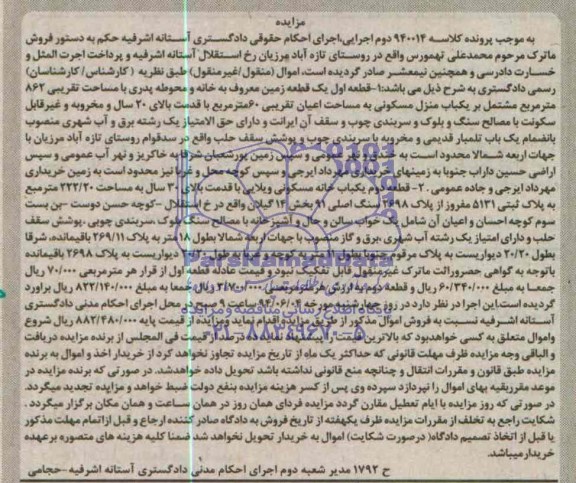 مزایده
به موجب پرونده کلاسه ۹۴۰۰۱۴ دوم اجرایی،اجرای احکام حقوقی دادگستری آستانه اشرفیه حکم به دستور فروش
ماترک مرحوم محمدعلی تهمورس واقع در روستای تازه آباد مرزیان رخ استقلال آستانه اشرفیه و پرداخت اجرت المثل و
خسارت دادرسی و همچنین نیمعشر صادر گردیده است، اموال (منقول/غیرمنقول) طبق نظریه (کارشناس/کارشناسان)
رسمی دادگستری به شرح ذیل می باشد:۱-قطعه اول یک قطعه زمین معروف به خانه و محوطه پدری با مساحت تقریبی ۸۶۲
مترمربع مشتمل بر یکباب منزل مسکونی به مساحت اعیان تقریبی ۶۰مترمربع با قدمت بالای ۲۰ سال و مخروبه و غیرقابل
سکونت با مصالح سنگ و بلوک و سربندی چوب و سقف آن ایرانت و دارای حق الامتیاز یک رشته برق و آب شهری منصوب
بانضمام یک باب تلمبار قدیمی و مخروبه با سربندی چوب و پوشش سقف حلب واقع در سدقوام روستای تازه آباد مرزیان با
جهات اربعه شمالا محدود است به خندق و نهر عمومی و سپس زمین پورشعبان شرقا به خاکریز و نهر آب عمومی و سپس
اراضی حسین داراب جنوبا به زمینهای خریداری مهرداد ایرجی و سپس کوچه محل و غربا نیز محدود است به زمین خریداری
مهرداد ایرجی و جاده عمومی .۲- قطعه دوم یکباب خانه مسکونی ویلایی با قدمت بالای ۳۰ سال به مساحت ۲۲۲/۲۰ مترمربع
به پلاک ثبتی ۵۱۳۱ مفروز از پلاک ۲۶۹۸ سنگ اصلی ۹۱ بخش ۱۴ گیلان واقع در خ استقلال -کوچه حسن دوست -بن بست
سوم کوچه احسان و اعیان آن شامل یک خواب سالن و حال و آشپزخانه با مصالح سنگ بلوک ،سربندی چوبی ،پوشش سقف
حلب و دارای امتیاز یک رشته آب شهری ،برق و گاز منصوب با جهات اربعه شمالا بطول ۱۸ متر به پلاک ۲۶۹/۱۱ باقیمانده، شرقا
بطول ۲۰/۲۰ دیواریست به پلاک مرقوم جنوبا بطول متر به کوچه و غربا به طول دیواریست به پلاک ۲۶۹۸ باقیمانده
باتوجه به گواهی حصروراثت ماترک غیرمنقول قابل تفکیک نبود و قیمت عادله قطعه اول از قرار هر مترمربعی ۷۰/۰۰۰ ریال
جمعا به مبلغ ۶۰/۳۴۰/۰۰۰ ریال و قطعه دوم به ارزش هر مترمربعی ۳/۷۰۰/۰۰۰ ریال جمعا به مبلغ ۸۲۲/۱۴۰/۰۰۰ ریال برآورد
گردیده است.این اجرا در نظر دارد در روز چهارشنبه مورخه ۹۴/۰۶/۰۴ ساعت ۹ صبح در محل اجرای احکام مدنی دادگستری
آستانه اشرفیه نسبت به فروش اموال مذکور از طریق مزایده اقدام نماید ومزایده از قیمت پایه ۸۸۲/۴۸۰/۰۰۰ ریال شروع
واموال متعلق به کسی خواهدبود که بالاترین قیمت را پیشنهاد نماید. ده درصد از قیمت فی المجلس از برنده مزایده دریافت
و الباقی وجه مزایده ظرف مهلت قانونی که حداکثر یک ماه از تاریخ مزایده تجاوز نخواهد کرد از خریدار اخذ و اموال به برنده
مزایده طبق قانون و مقررات انتقال و چنانچه منع قانونی نداشته باشد تحویل داده خواهدشد. در صورتی که برنده مزایده در
موعد مقرربقیه بهای اموال را نپردازد سپرده وی پس از کسر هزینه مزایده بنفع دولت ضبط خواهد و مزایده تجدید میگردد.
در صورتی که روز مزایده با ایام تعطیل مقارن گردد مزایده فردای همان روز در همان ساعت و همان مکان برگزار میگردد .
شکایت راجع به تخلف از مقررات مزایده ظرف یکهفته از تاریخ فروش به دادگاه صادر کننده ارجاع و قبل از اتمام مهلت مذکور
یا قبل از اتخاذ تصمیم دادگاه( درصورت شکایت) اموال به خریدار تحویل نخواهد شد ضمنا کلیه هزینه های متصوره برعهده
خریدارمیباشد.
ح ۱۷۹۲ مدیر شعبه دوم اجرای احکام مدنی دادگستری آستانه اشرفیه-حجامی
ParsNamadData
پایگاه اطلاع رسانی مناقصه و مزایده
۰۲۱-۸۸۳۴۹۶۷۰-۵